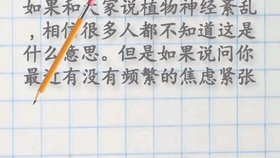 如果和大家说植物神经紊乱
，相信很多人都不知道这是
什么意思。但是如果说问你
最近有没有频繁的焦虑紧张